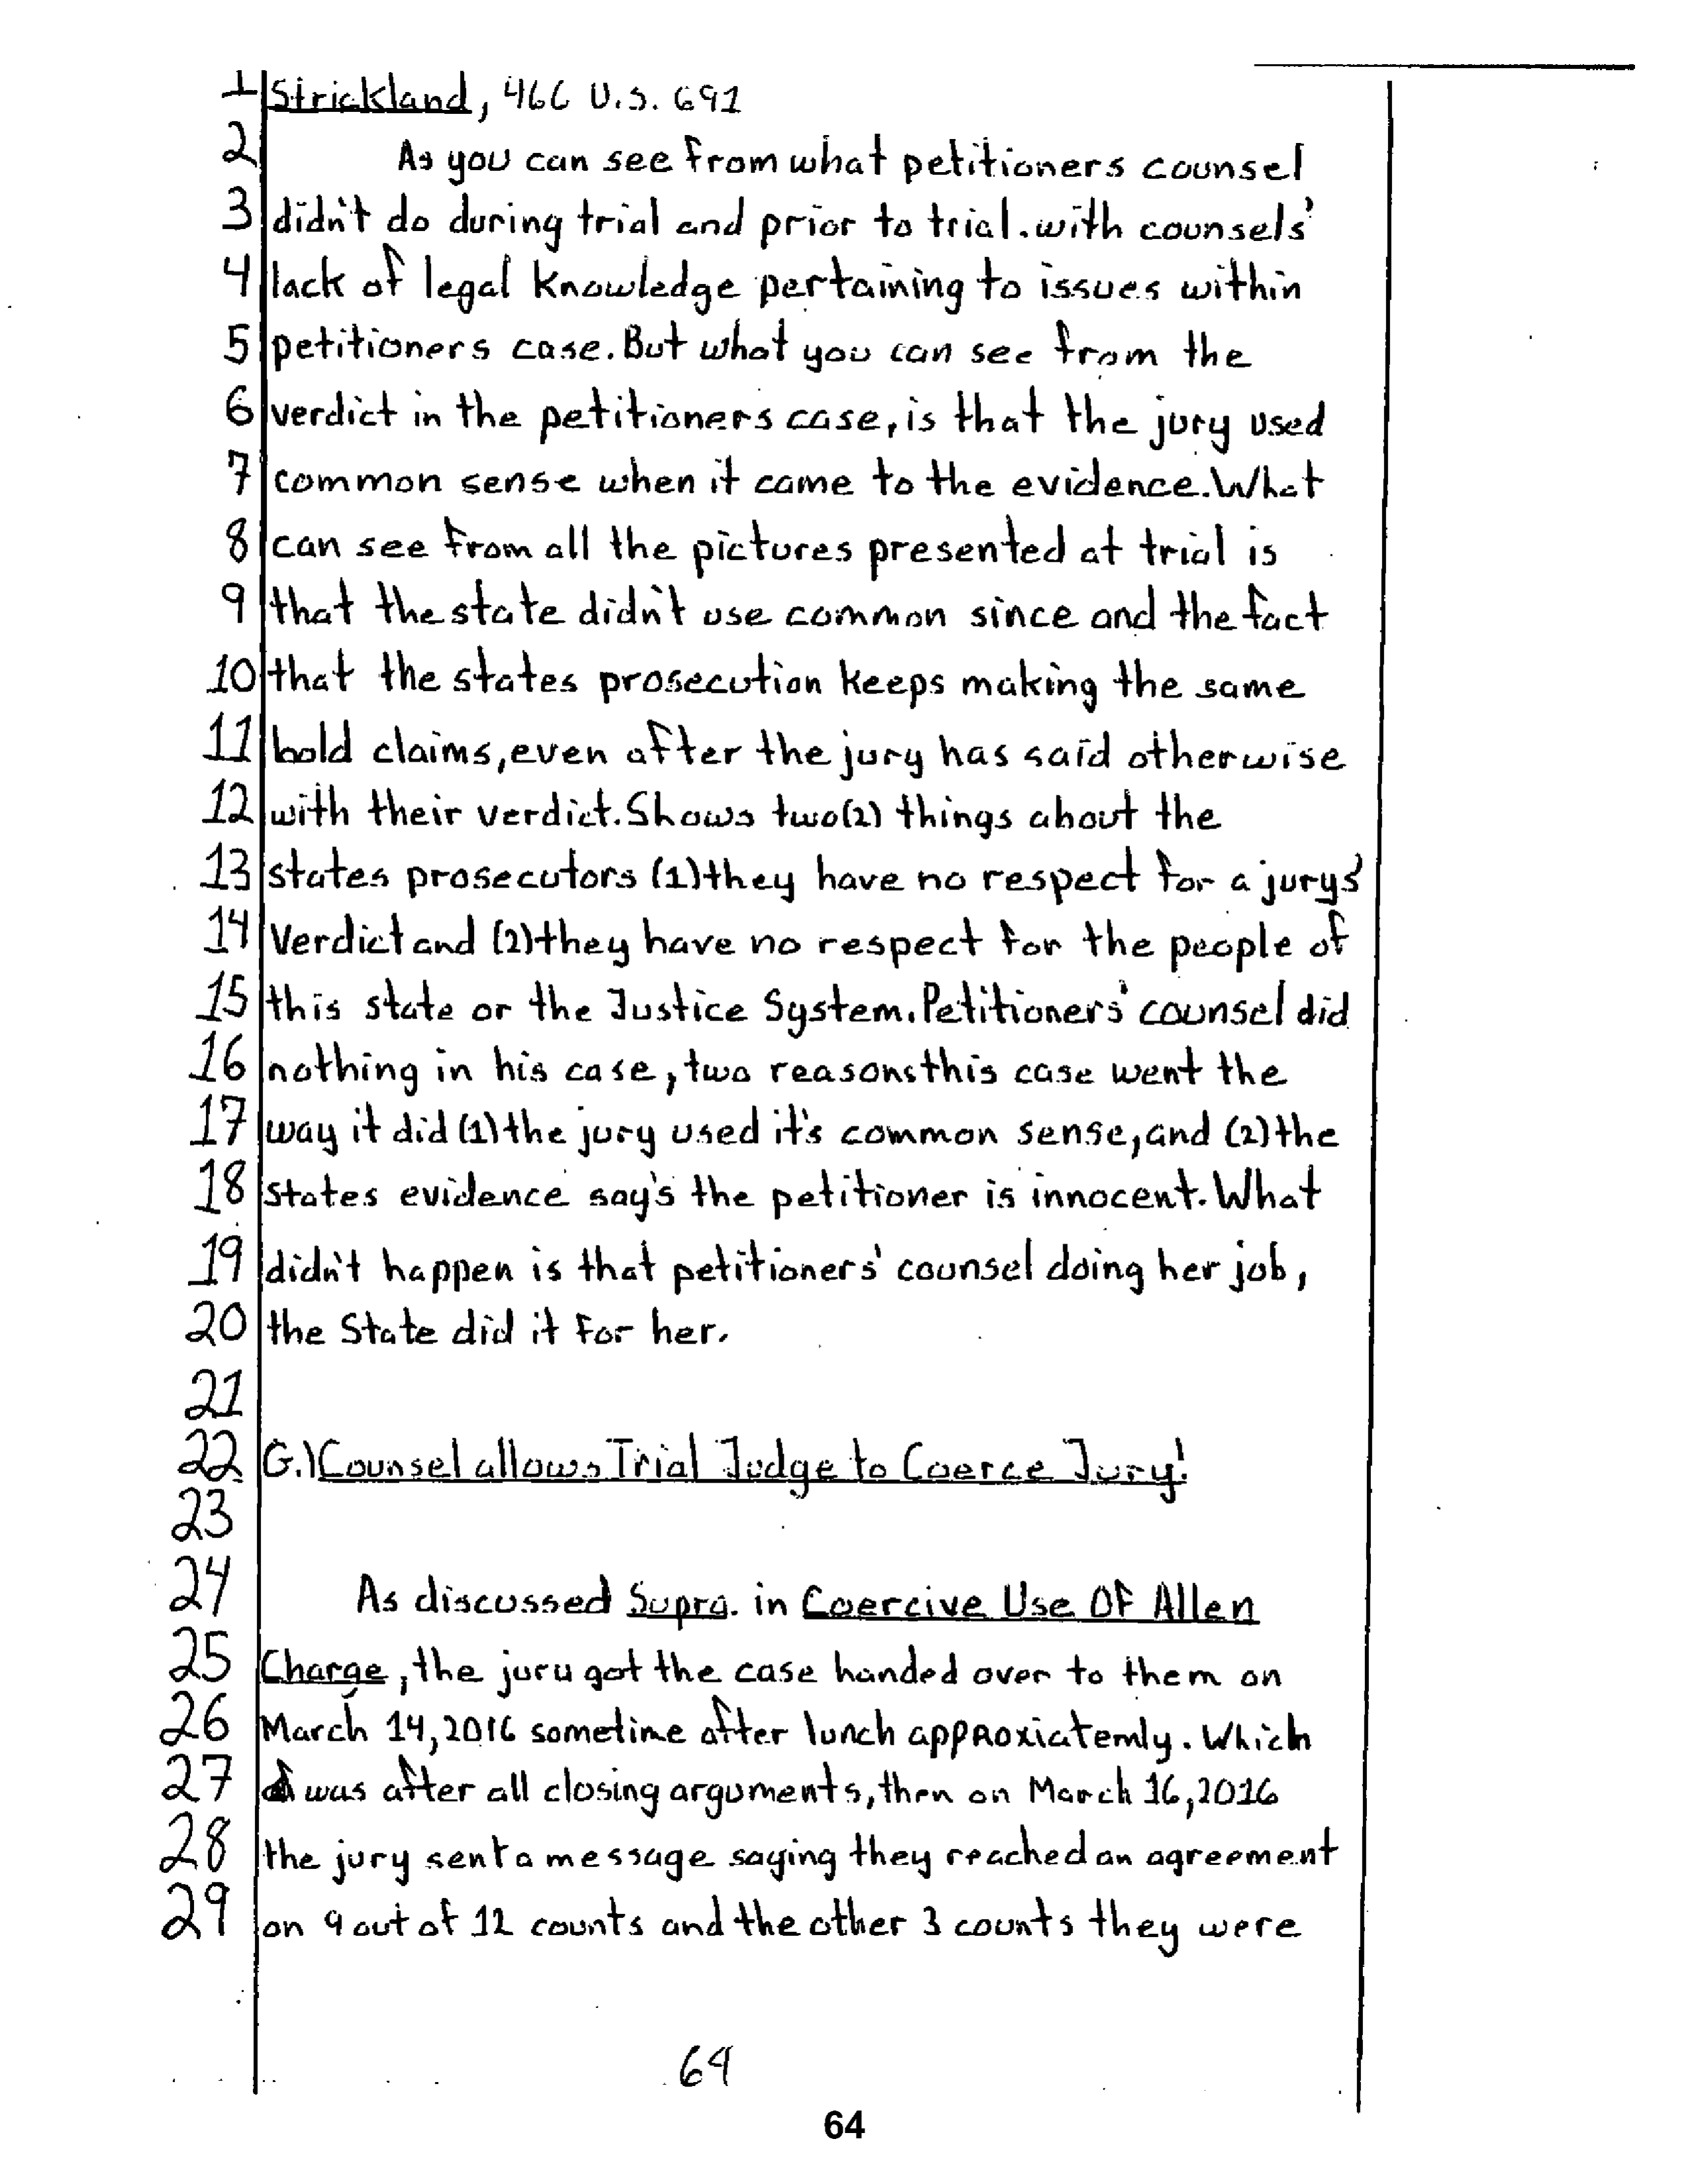 1 Strickland, 466 U.S. 691
2 As you can see from what petitioners counsel
3 didn't do during trial and prior to trial. with counsels'
4 lack of legal knowledge pertaining to issues within
5 petitioners case. But what you can see from the
6 verdict in the petitioners case, is that the jury used
7 common sense when it came to the evidence. What
8 can see from all the pictures presented at trial is
9 that the state didn't use common since and the fact
10 that the states prosecution keeps making the same
11 bold claims, even after the jury has said otherwise
12 with their verdict. Shows two(2) things about the
13 states prosecutors (1) they have no respect for a jurys'
14 Verdict and (2) they have no respect for the people of
15 this state or the Justice System. Petitioners' counsel did
16 nothing in his case, two reasons this case went the
17 way it did (1) the jury used it's common sense, and (2) the
18 states evidence say's the petitioner is innocent. What
19 didn't happen is that petitioners' counsel doing her job,
20 the State did it for her.
21
22 G.) Counsel allows Trial Judge to Coerce Jury!
23
24 As discussed Supra. in Coercive Use OF Allen
25 Charge, the juru got the case handed over to them on
26 March 14, 2016 sometime after lunch approxiatemly. Which
27 was after all closing arguments, then on March 16, 2016
28 the jury sent a message saying they reached an agreement
29 on 9 out of 12 counts and the other 3 counts they were
64
64